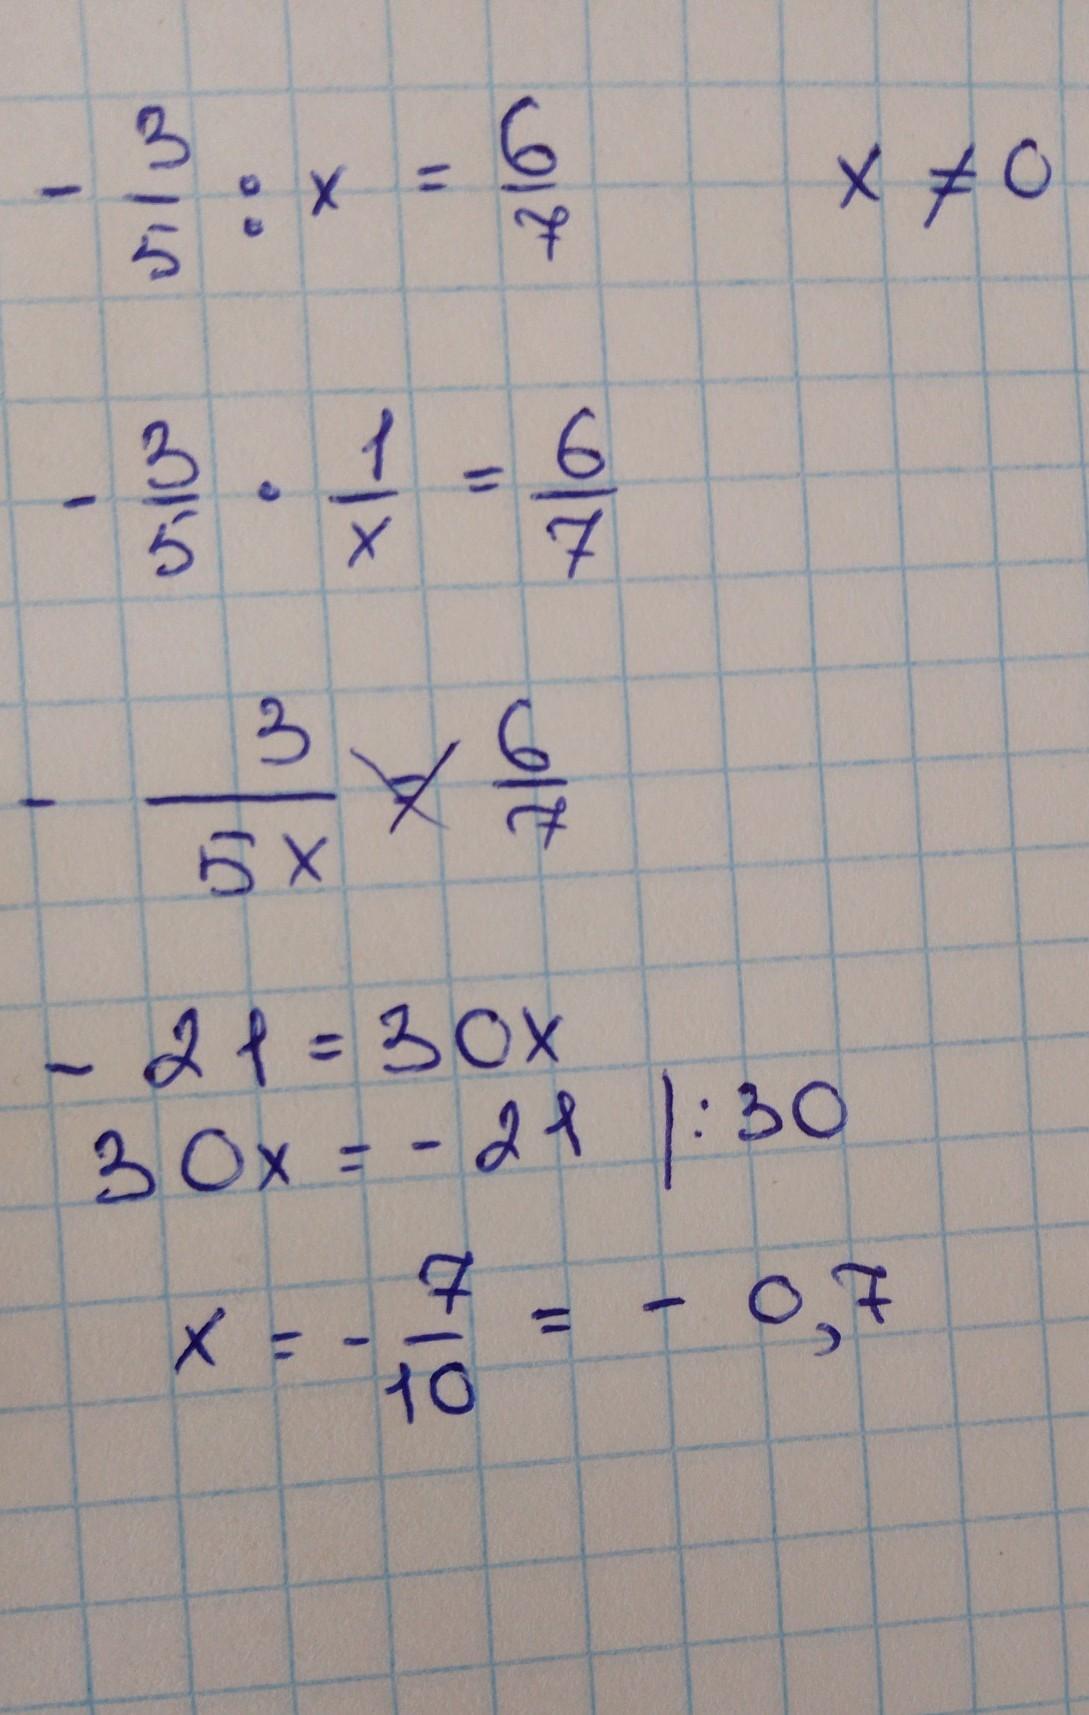 - 3/5 : x = 6/7 x ≠ 0
- 3/5 · 1/x = 6/7
- 3/5x = 6/7
- 21 = 30x
30x = - 21 |: 30
x = - 7/10 = - 0,7